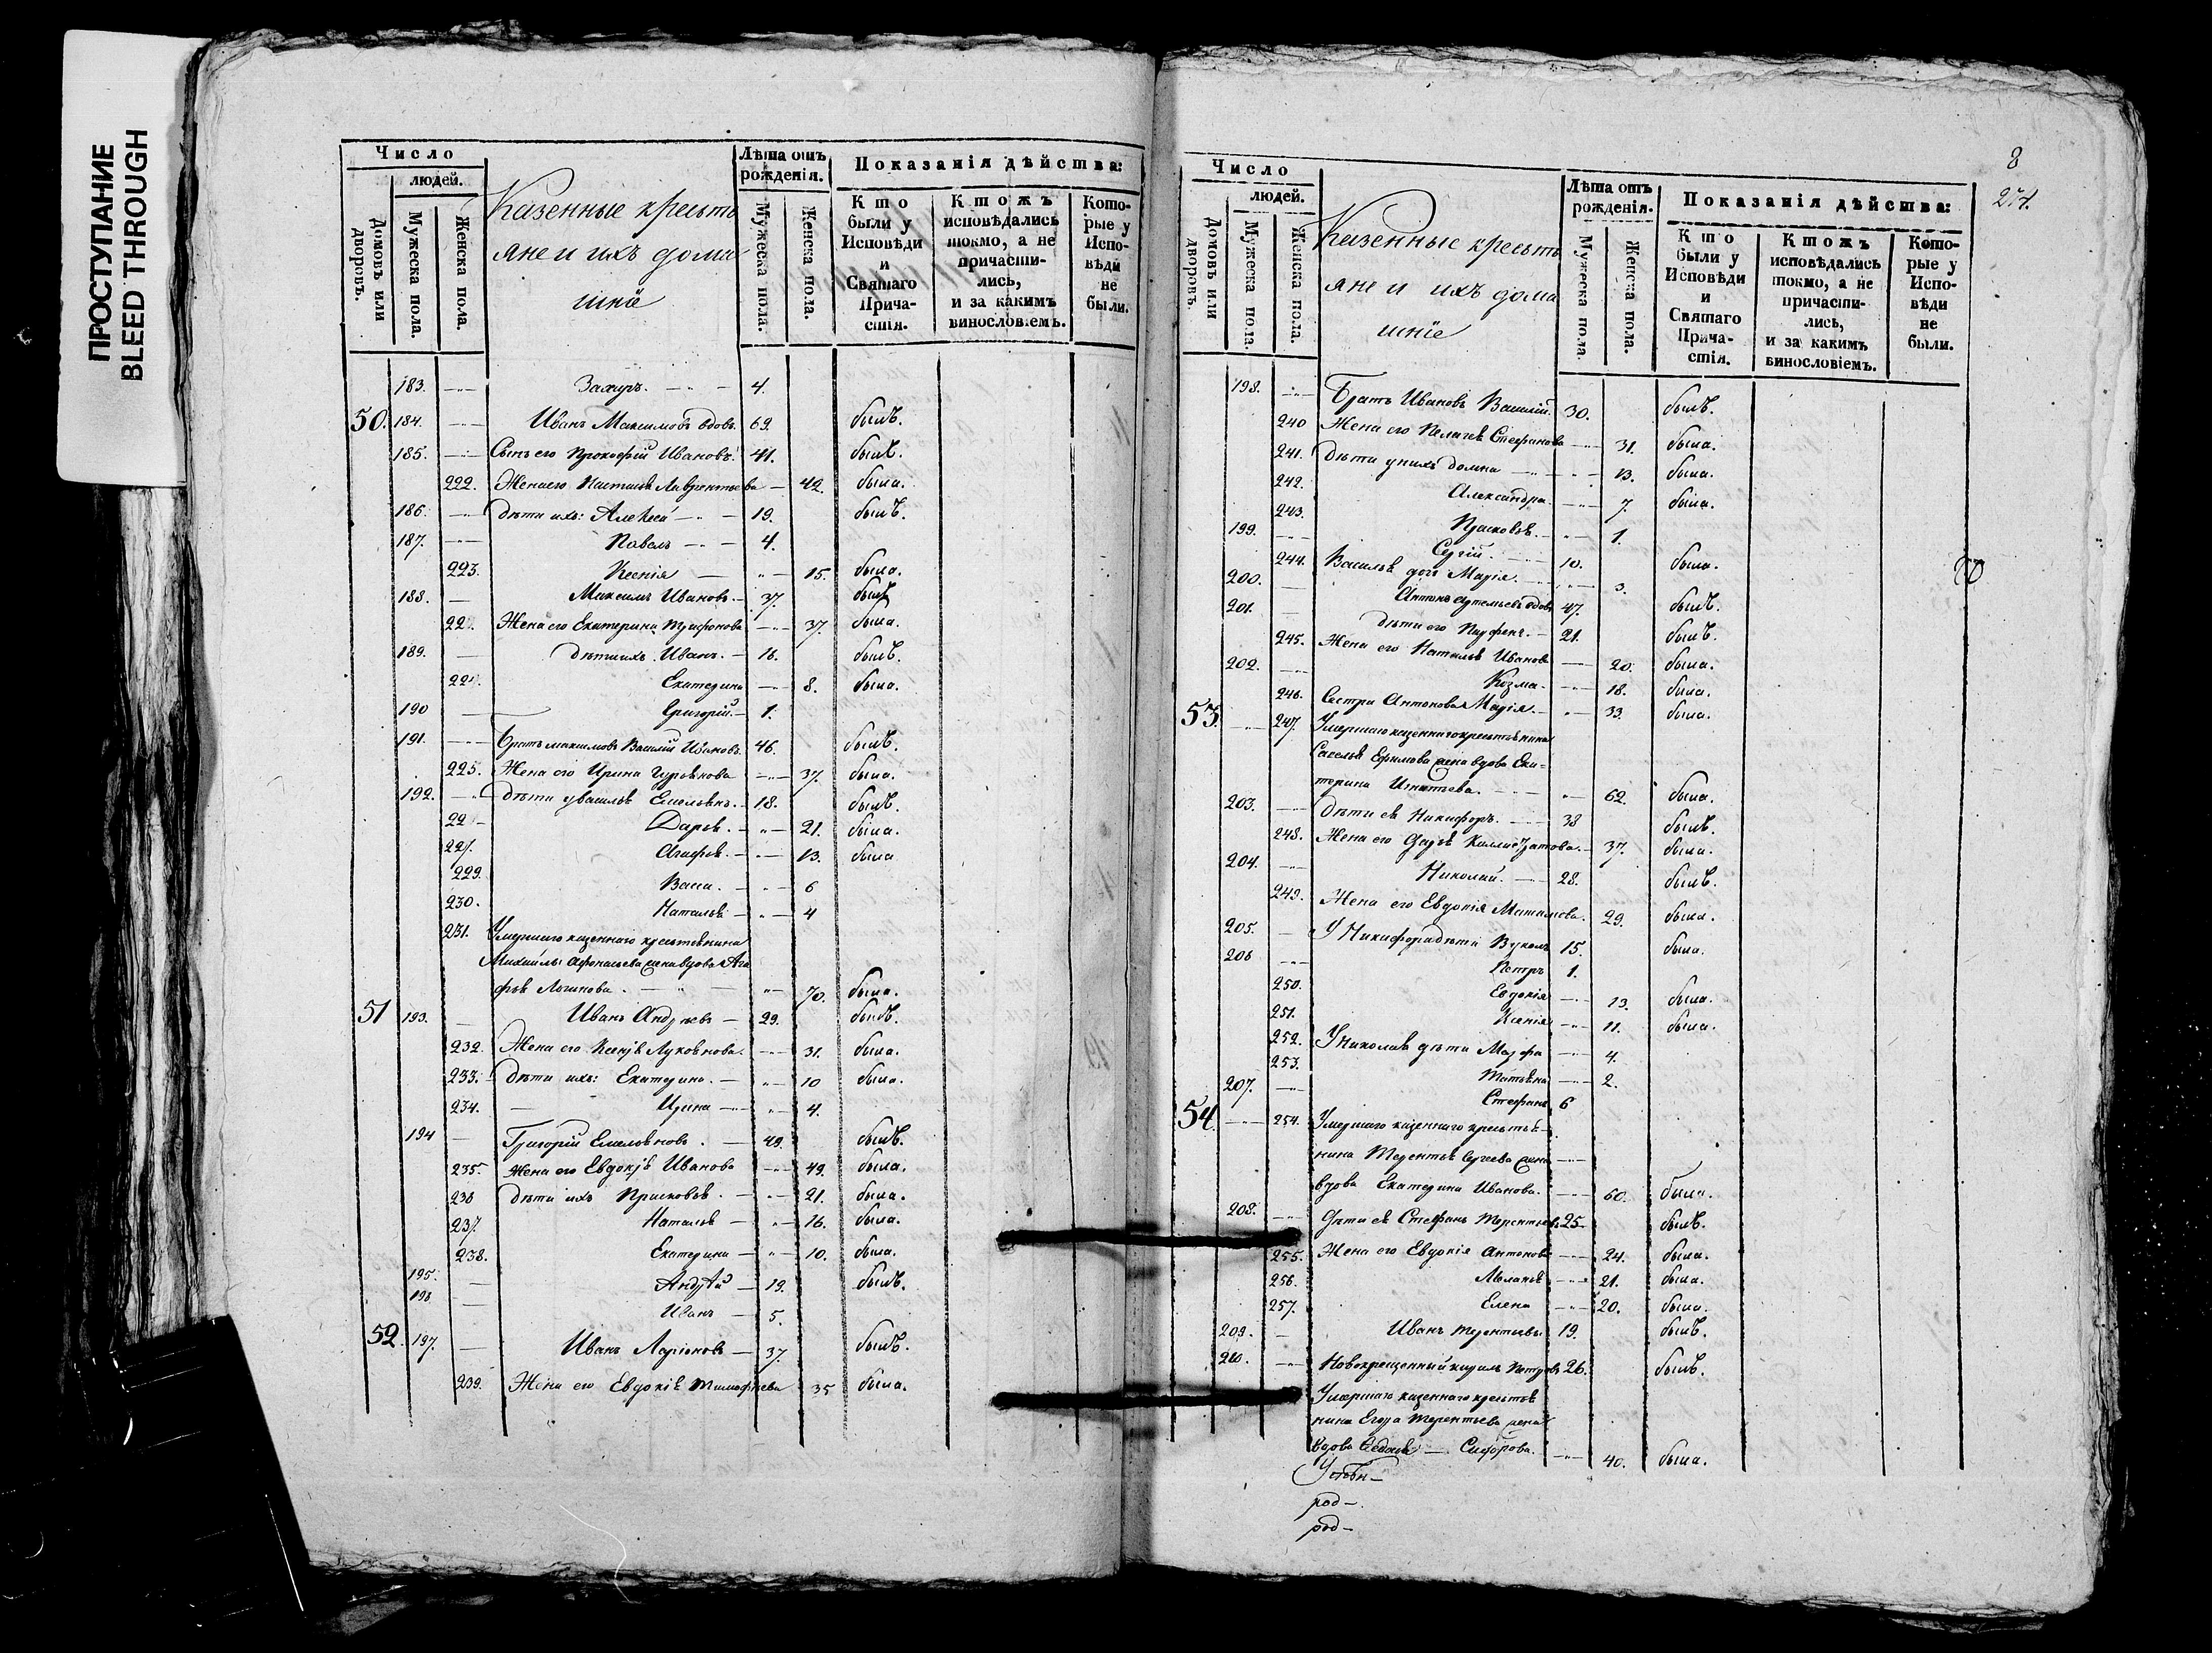 ПРОСТУПАНИЕ
BLEED THROUGH
Число
людей.
Домовъ или дворовъ.
Мужеска пола.
Женска пола.
Казенные крестъ
яне и ихъ дома
шніе
Лѣта отъ рожденія.
Мужеска пола.
Женска пола.
Показанія дѣйства:
Кто были у Исповѣди и Святаго Причастія.
Ктожъ исповѣдались токмо, а не причастились, и за какимъ винословіемъ.
Которые у Исповѣди не были.
183. Захаръ. 4.
50. 184. Иванъ Максимовъ вдовъ. 69. былъ.
185. Сынъ его Прокофій Ивановъ. 41. былъ.
222. Жена его Настасья Лаврентьева 42. была.
186. Дѣти ихъ: Алексѣй 19. былъ.
187. Павелъ 4.
223. Ксенія 15. была.
188. Максимъ Ивановъ. 37. былъ
22 Жена его Екатерина Трифонова 37. была.
189. Дѣти ихъ Иванъ. 16. былъ.
22 Екатерина 8. была.
190 Григорій. 1.
191. Братъ Максимовъ Василій Ивановъ. 46. былъ.
225. Жена его Ирина Гурьянова 37. была.
192. Дѣти у Василья Емельянъ. 18. былъ.
22 Дарья. 21. была.
227. Агафья. 13. была
229. Васса. 6
230. Наталья 4
231. Умершаго казеннаго крестьянина
Михайлы Афонасьева жена вдова Ага
фья Логинова. 70. была.
51 193. Иванъ Андреевъ 29. былъ.
232. Жена его Ксенья Лукьянова. 31. была.
233. Дѣти ихъ: Екатерина. 10 была.
234. Ирина 4.
194 Григорій Емельяновъ. 49. былъ.
235. Жена его Евдокія Иванова 49. была.
236 Дѣти ихъ Прасковья. 21. была.
237. Наталья 16. была.
238. Екатерина 10. была.
195. Андрей 19. былъ.
196 Иванъ 5.
52. 197. Иванъ Ларіоновъ 37. былъ.
239. Жена его Евдокія Тимофеева 35 была.
8
274.
Число
людей.
Домовъ или дворовъ.
Мужеска пола.
Женска пола.
Казенные крестъ
яне и ихъ дома
шніе
Лѣта отъ рожденія.
Мужеска пола.
Женска пола.
Показанія дѣйства:
Кто были у Исповѣди и Святаго Причастія.
Ктожъ исповѣдались токмо, а не причастились, и за какимъ винословіемъ.
Которые у Исповѣди не были.
198. Братъ Ивановъ Василій. 30. былъ.
240 Жена его Пелагея Стефанова 31. была.
241. Дѣти у нихъ Домна 13. была.
242. Александра 7. была.
243. Прасковья. 1.
199. Сергій. 10. была.
244. Василья дочь Марія. 3.
200. Антонъ Артемьевъ вдовъ 47. былъ.
201. Дѣти его Парфенъ. 21. былъ.
245. Жена его Наталья Иванова 20. была.
202. Козма. 18. была.
246. Сестра Антонова Марія. 33. была.
53. 247. Умершаго казеннаго крестьянина
Савелья Ефимова жена вдова Ека-
терина Игнатьева. 62. была.
203. Дѣти ея Никифоръ. 38 былъ.
248. Жена его Дарья Каллистратова. 37. была.
204. Николай. 28. былъ.
249. Жена его Евдокія 29. была.
205. У Никифора дѣти Вуколъ 15. была.
206 Петръ 1.
250. Евдокія 13. была.
251. Ксенія 11. была.
252. У Николая дѣти Марфа 4.
253. Татьяна 2.
207. Стефанъ 6
54 254. Умершаго казеннаго крестья-
нина Терентья Сергеева жена
вдова Екатерина Иванова. 60. была.
208. Дѣти ея Стефанъ Терентьевъ 25 былъ.
255. Жена его Евдокія Антонова 24. была.
256. Меланья 21. была.
257. Елена 20. была.
209. Иванъ Терентьевъ 19. былъ.
210. Новокрещенный Петровъ 26. былъ.
Умершаго казеннаго крестья
нина Егора Терентьева жена
вдова Федосья Сидорова. 40. была.
род-
род-